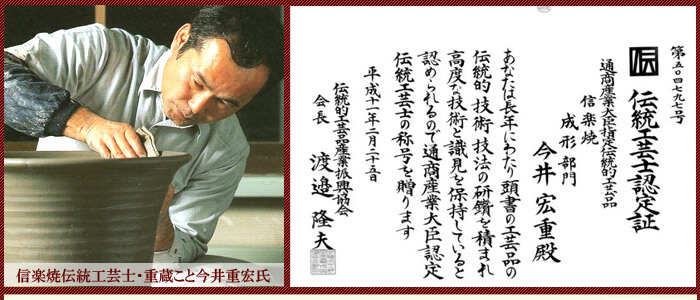 信楽焼伝統工芸士・重蔵こと今井重宏氏
第五〇四七九七号
伝
伝統工芸士認定証
通商産業大臣指定伝統的工芸品
信楽焼
成形部門
今井宏重殿
あなたは長年にわたり頭書の工芸品の
伝統的技術技法の研鑽を積まれ
高度な技術と識見を保持していると
認められるので通商産業大臣認定
伝統工芸士の称号を贈ります
平成十一年二月二十五日
伝統的工芸品産業振興協会
会長 渡邊隆夫